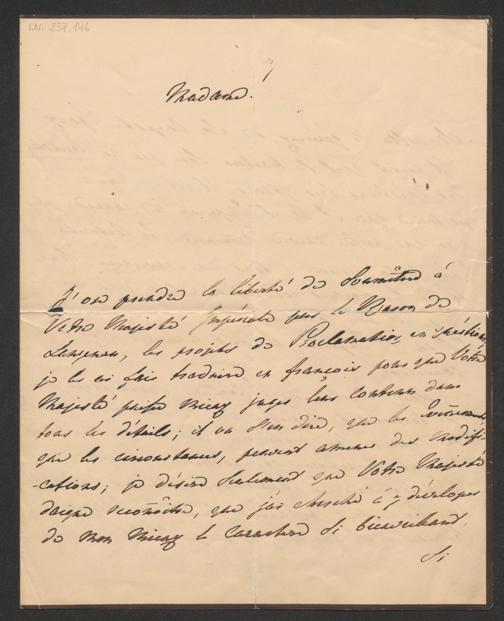 I.N. 237.146
Madame!
J'ose prendre la liberté de soumettre à
Votre Majesté Impériale par le Baron de
les projets de Proclamation en
je les ai fais traduire en françois pour que Votre
Majesté puisse mieux juger leur contenu dans
tous les détails; il va s'en dire, que les
que les circonstances, peuvent amener des modifi-
-cations; je désire seulement que Votre Majesté
daigne reconoître, que j'ai cherché à y déveloper
de mon mieux le caractère si bienveillant,
si